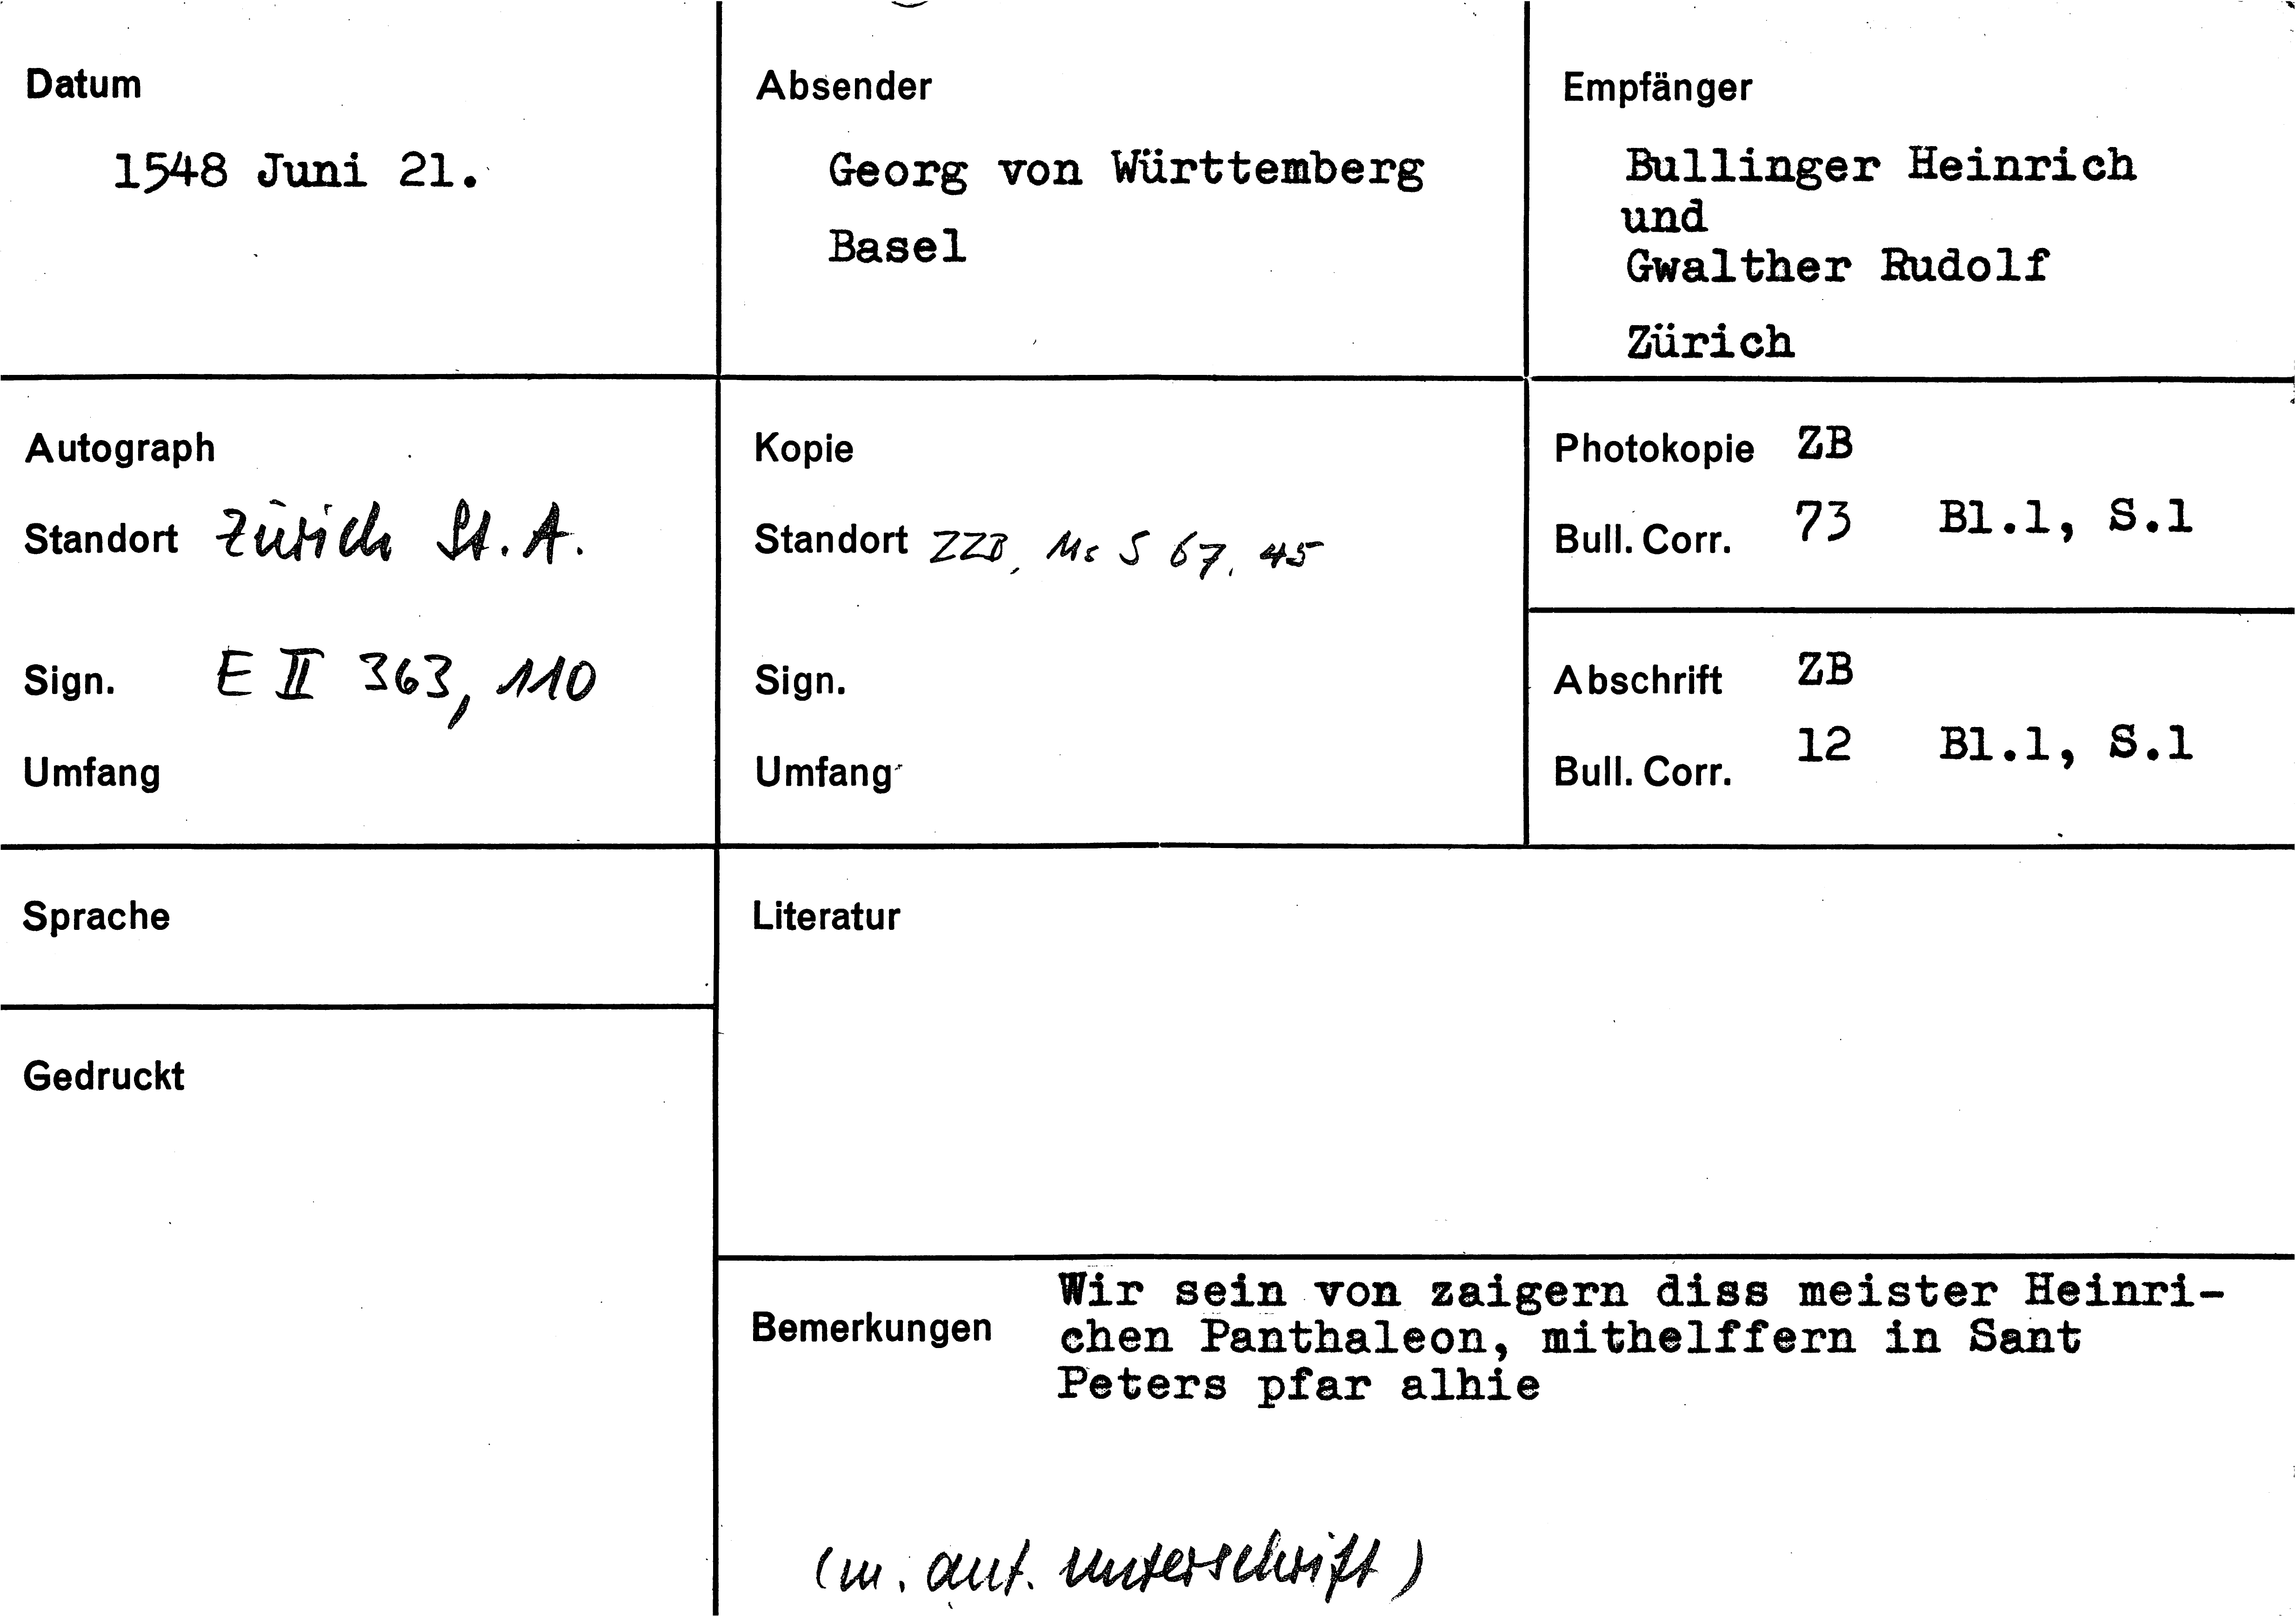 Datum
1548 Juni 21.
Absender
Georg von Württemberg
Basel
Empfänger
Bullinger Heinrich
und
Gwalther Rudolf
Zürich
Autograph
Standort Zürich St. A.
Sign. E II 363, 110
Umfang
Kopie
Standort ZZB, Ms S 67, 45
Sign.
Umfang
Photokopie ZB
Bull. Corr. 73 Bl.1, S.1
Abschrift ZB
Bull. Corr. 12 Bl.1, S.1
Sprache
Literatur
Gedruckt
Bemerkungen
Wir sein von zaigern diss meister Heinri-
chen Panthaleon, mithelffern in Sant
Peters pfar alhie
(m. aut. Unterschrift)